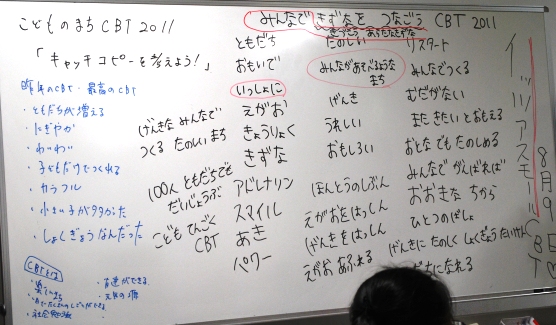 こどものまち CBT 2011
「キャッチコピーを考えよう!」
みんなで きずなを つなごう CBT 2011
昨年のCBT・最高のCBT
・ともだちが増える
・にぎやか
・わいわい
・子どもだけでつくれる
・カラフル
・小さい子が多かった
・しょくぎょうなんだった
げんきな みんなで
つくる たのしい まち
100人 ともだちでも
だいじょうぶ
こども ひごく
CBT
ともだち
おもいで
いっしょに
えがお
きょうりょく
きずな
アドレナリン
スマイル
あき
パワー
たのしい
みんながあそべるような
まち
げんき
うれしい
おもしろい
ほんとうのじぶん
えがおをはっしん
げんきをはっしん
えがお あふれる
リスタート
みんなでつくる
むだがない
また きたい とおもえる
おとなでも たのしめる
みんなで がんばれば
おおきな ちから
ひとつのばしょ
げんきに たのしく しょくぎょうたいけん
になれる
イッツ ア スモール
CBT
8月9日
CBTとは